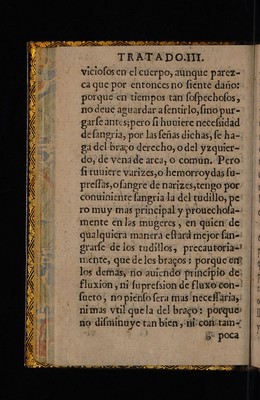 TRATADO.III.
viciosos en el cuerpo, aunque parez-
ca que por entonces no siente daño:
porque en tiempos tan sospechosos,
no deue aguardar a sentirlo, sino pur-
garse antes; pero si huuiere necessidad
de sangria, por las señas dichas, se ha-
ga del braço derecho, o del yzquier-
do, de vena de arca, o comun. Pero
si tuuiere varizes, o hemorroydas su-
pressas, o sangre de narizes, tengo por
conuiniente sangria la del tudillo, pe
ro muy mas principal y prouechosa-
mente en las mugeres, en quien de
qualquiera manera estarà mejor san-
grarse de los tudillos, precautoria-
mente, que de los braços: porque en
los demas, no auiendo principio de
fluxion, ni supression de fluxo con-
sueto, no pienso sera mas necessaria,
ni mas vtil que la del braço: porque
no disminuye tan bien, ni con tam-
poca